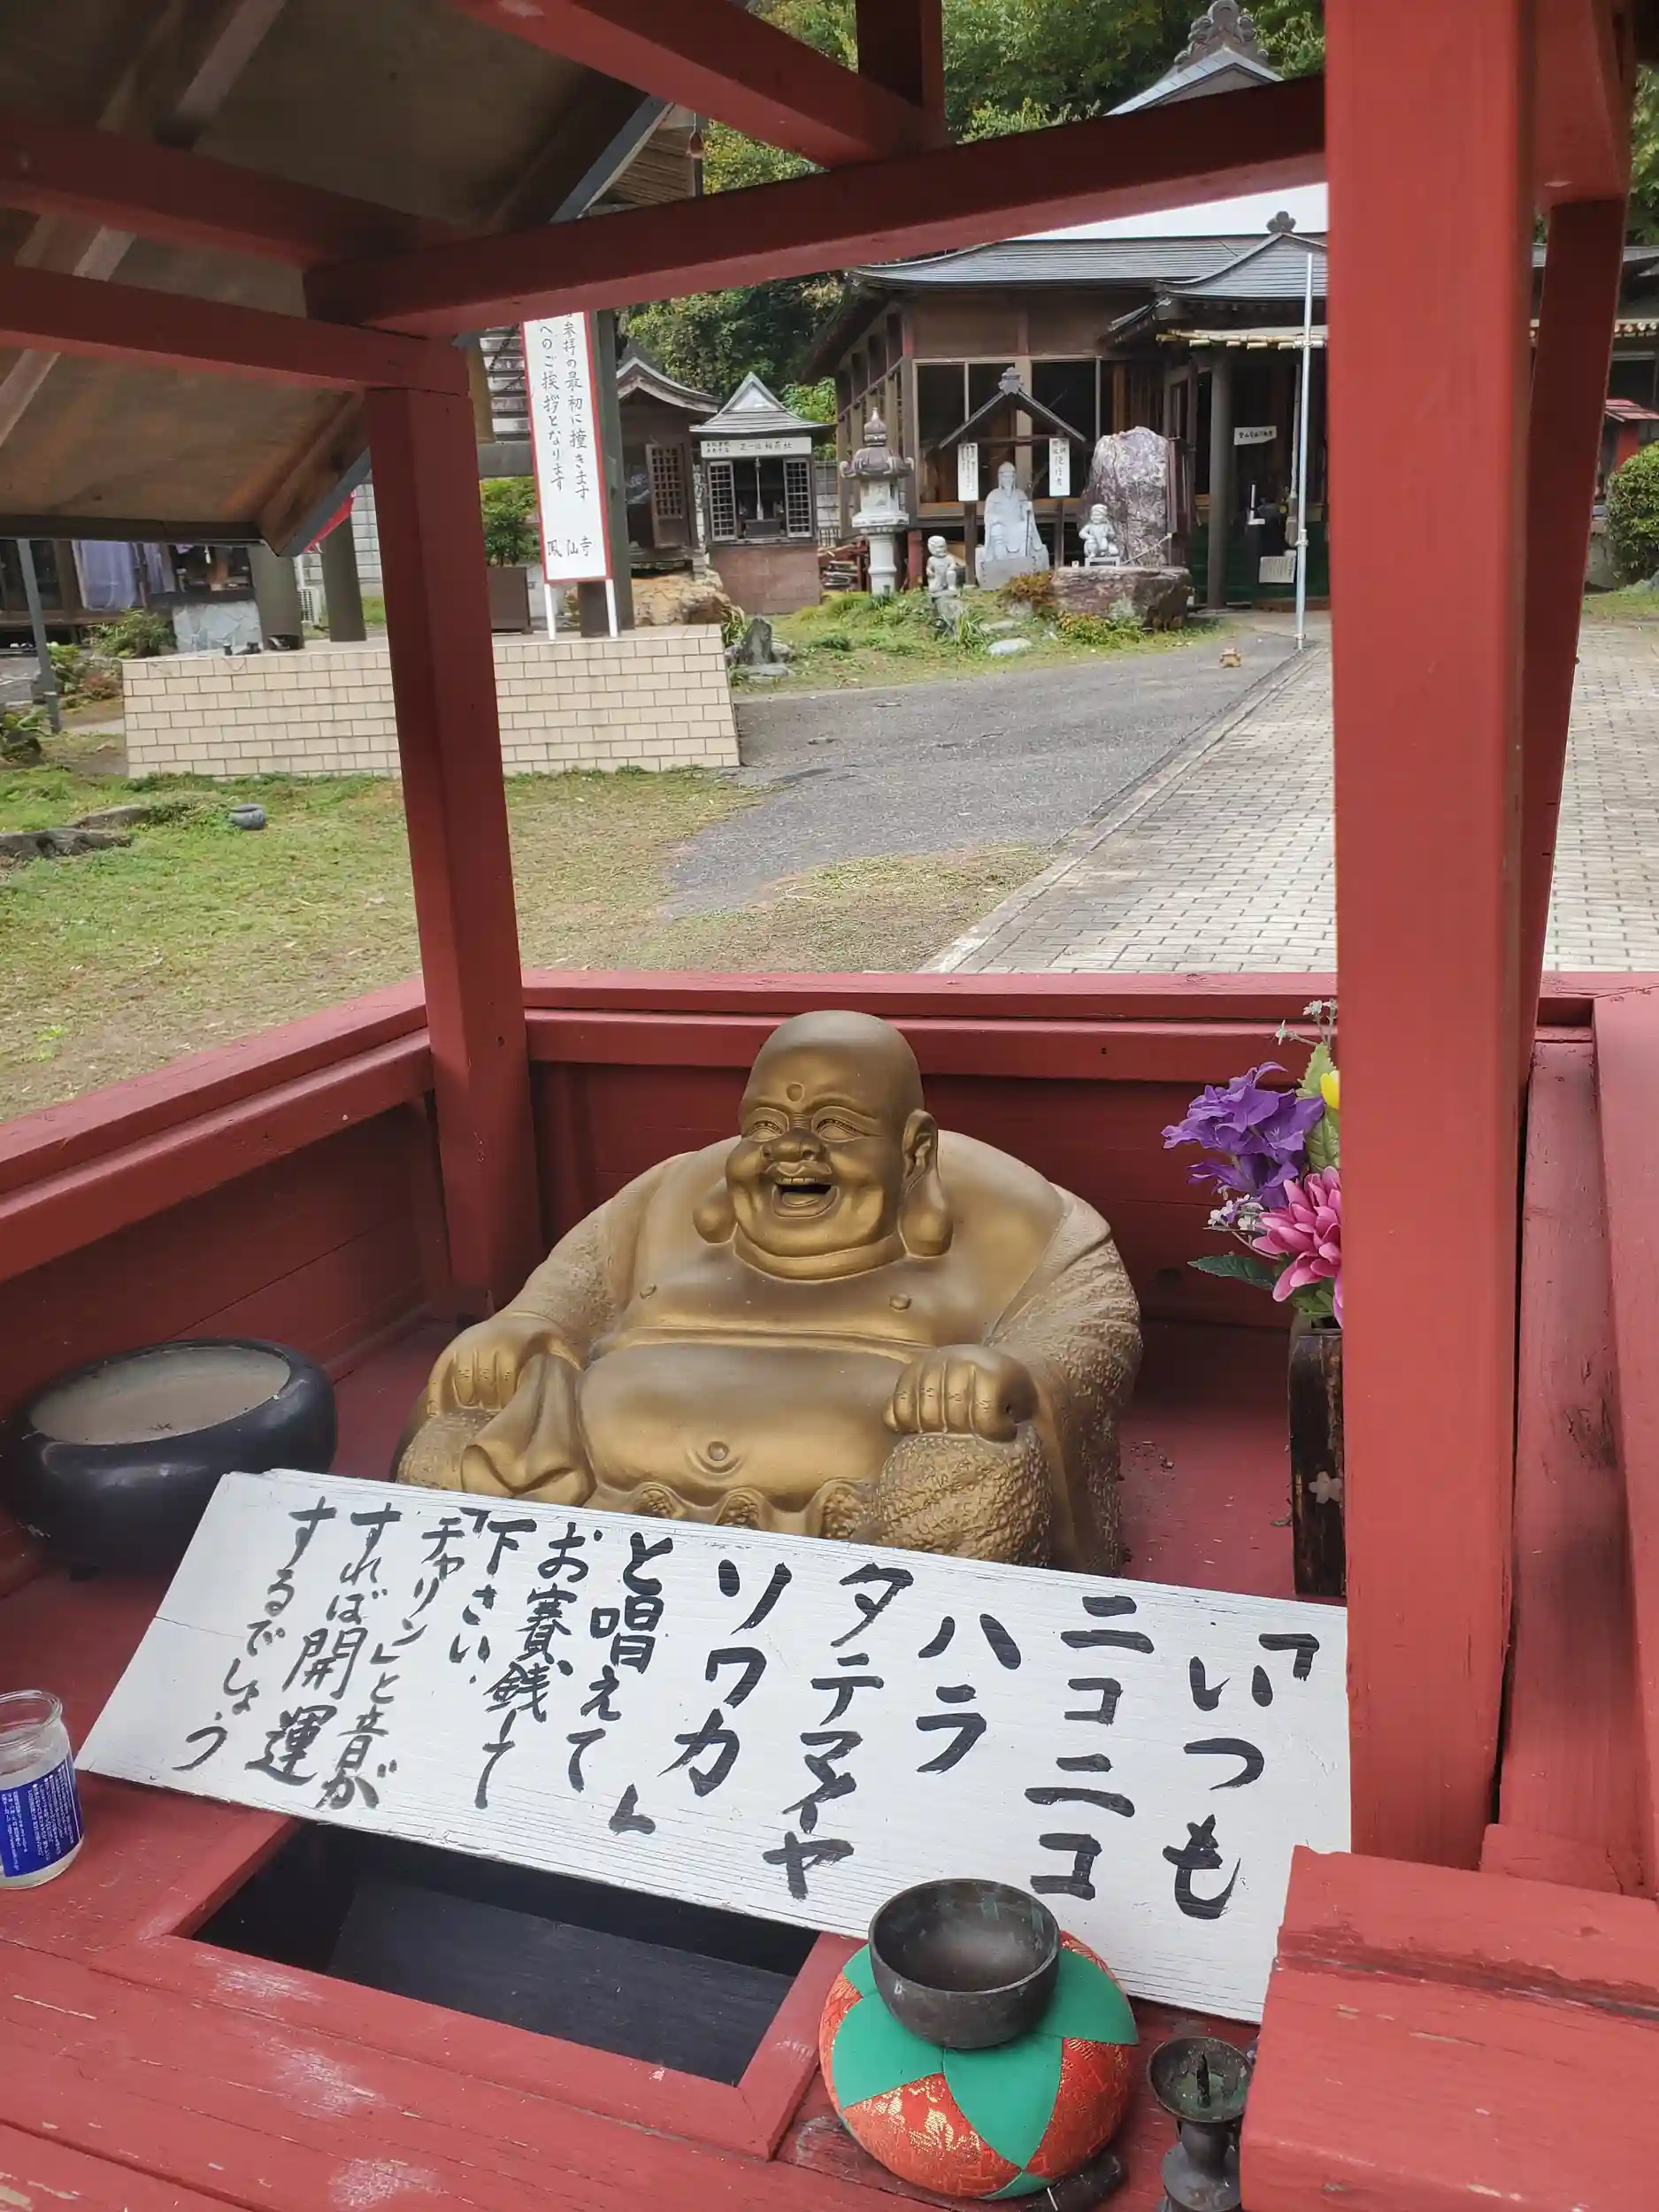 「いつも
ニコニコ
ハラ
タテマイヤ
ソワカ
と唱えて」
お賽銭して
下さい.
「チャリン」と音が
すれば開運
するでしょう
参拝の最初に撞きます
へのご挨拶となります
鳳仙寺
正一位 稲荷社